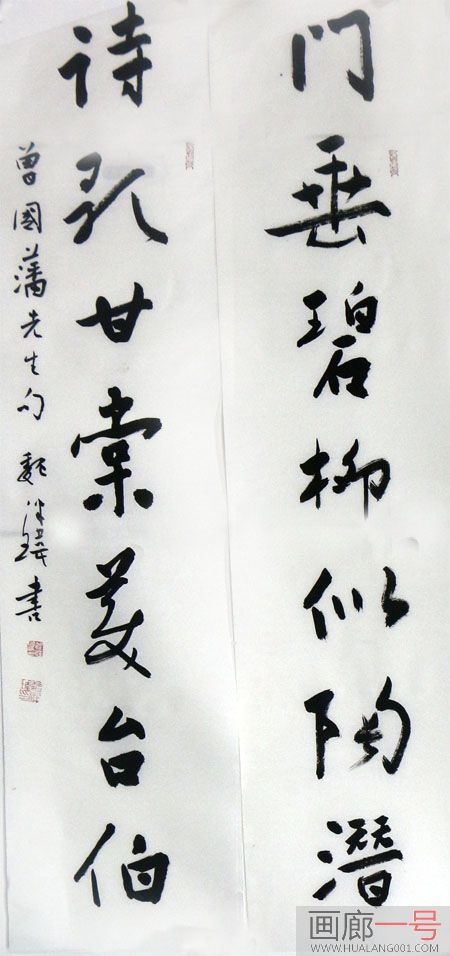 门垂碧柳似陶潜
诗歌甘棠美台伯
曾國藩先生句 魏 书
画廊一号
WWW.HUALANG001.COM